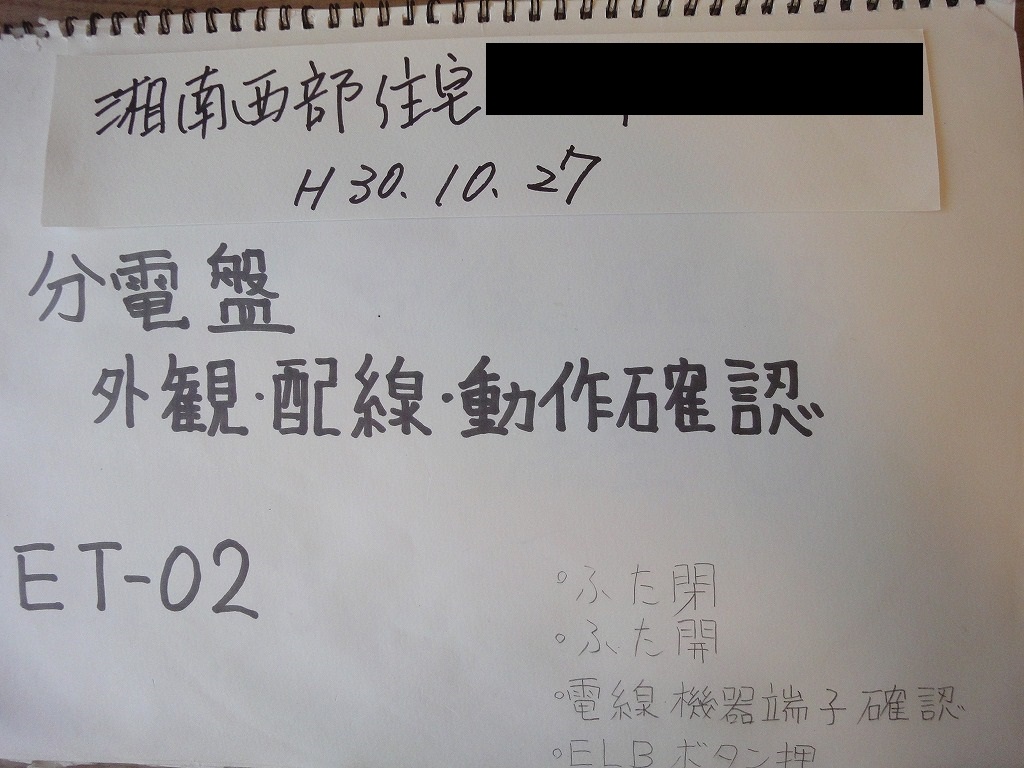 湘南西部住宅
H30.10.27
分電盤
外観・配線・動作確認
ET-02
○ふた閉
○ふた開
○電線機器端子確認
○ELBボタン押